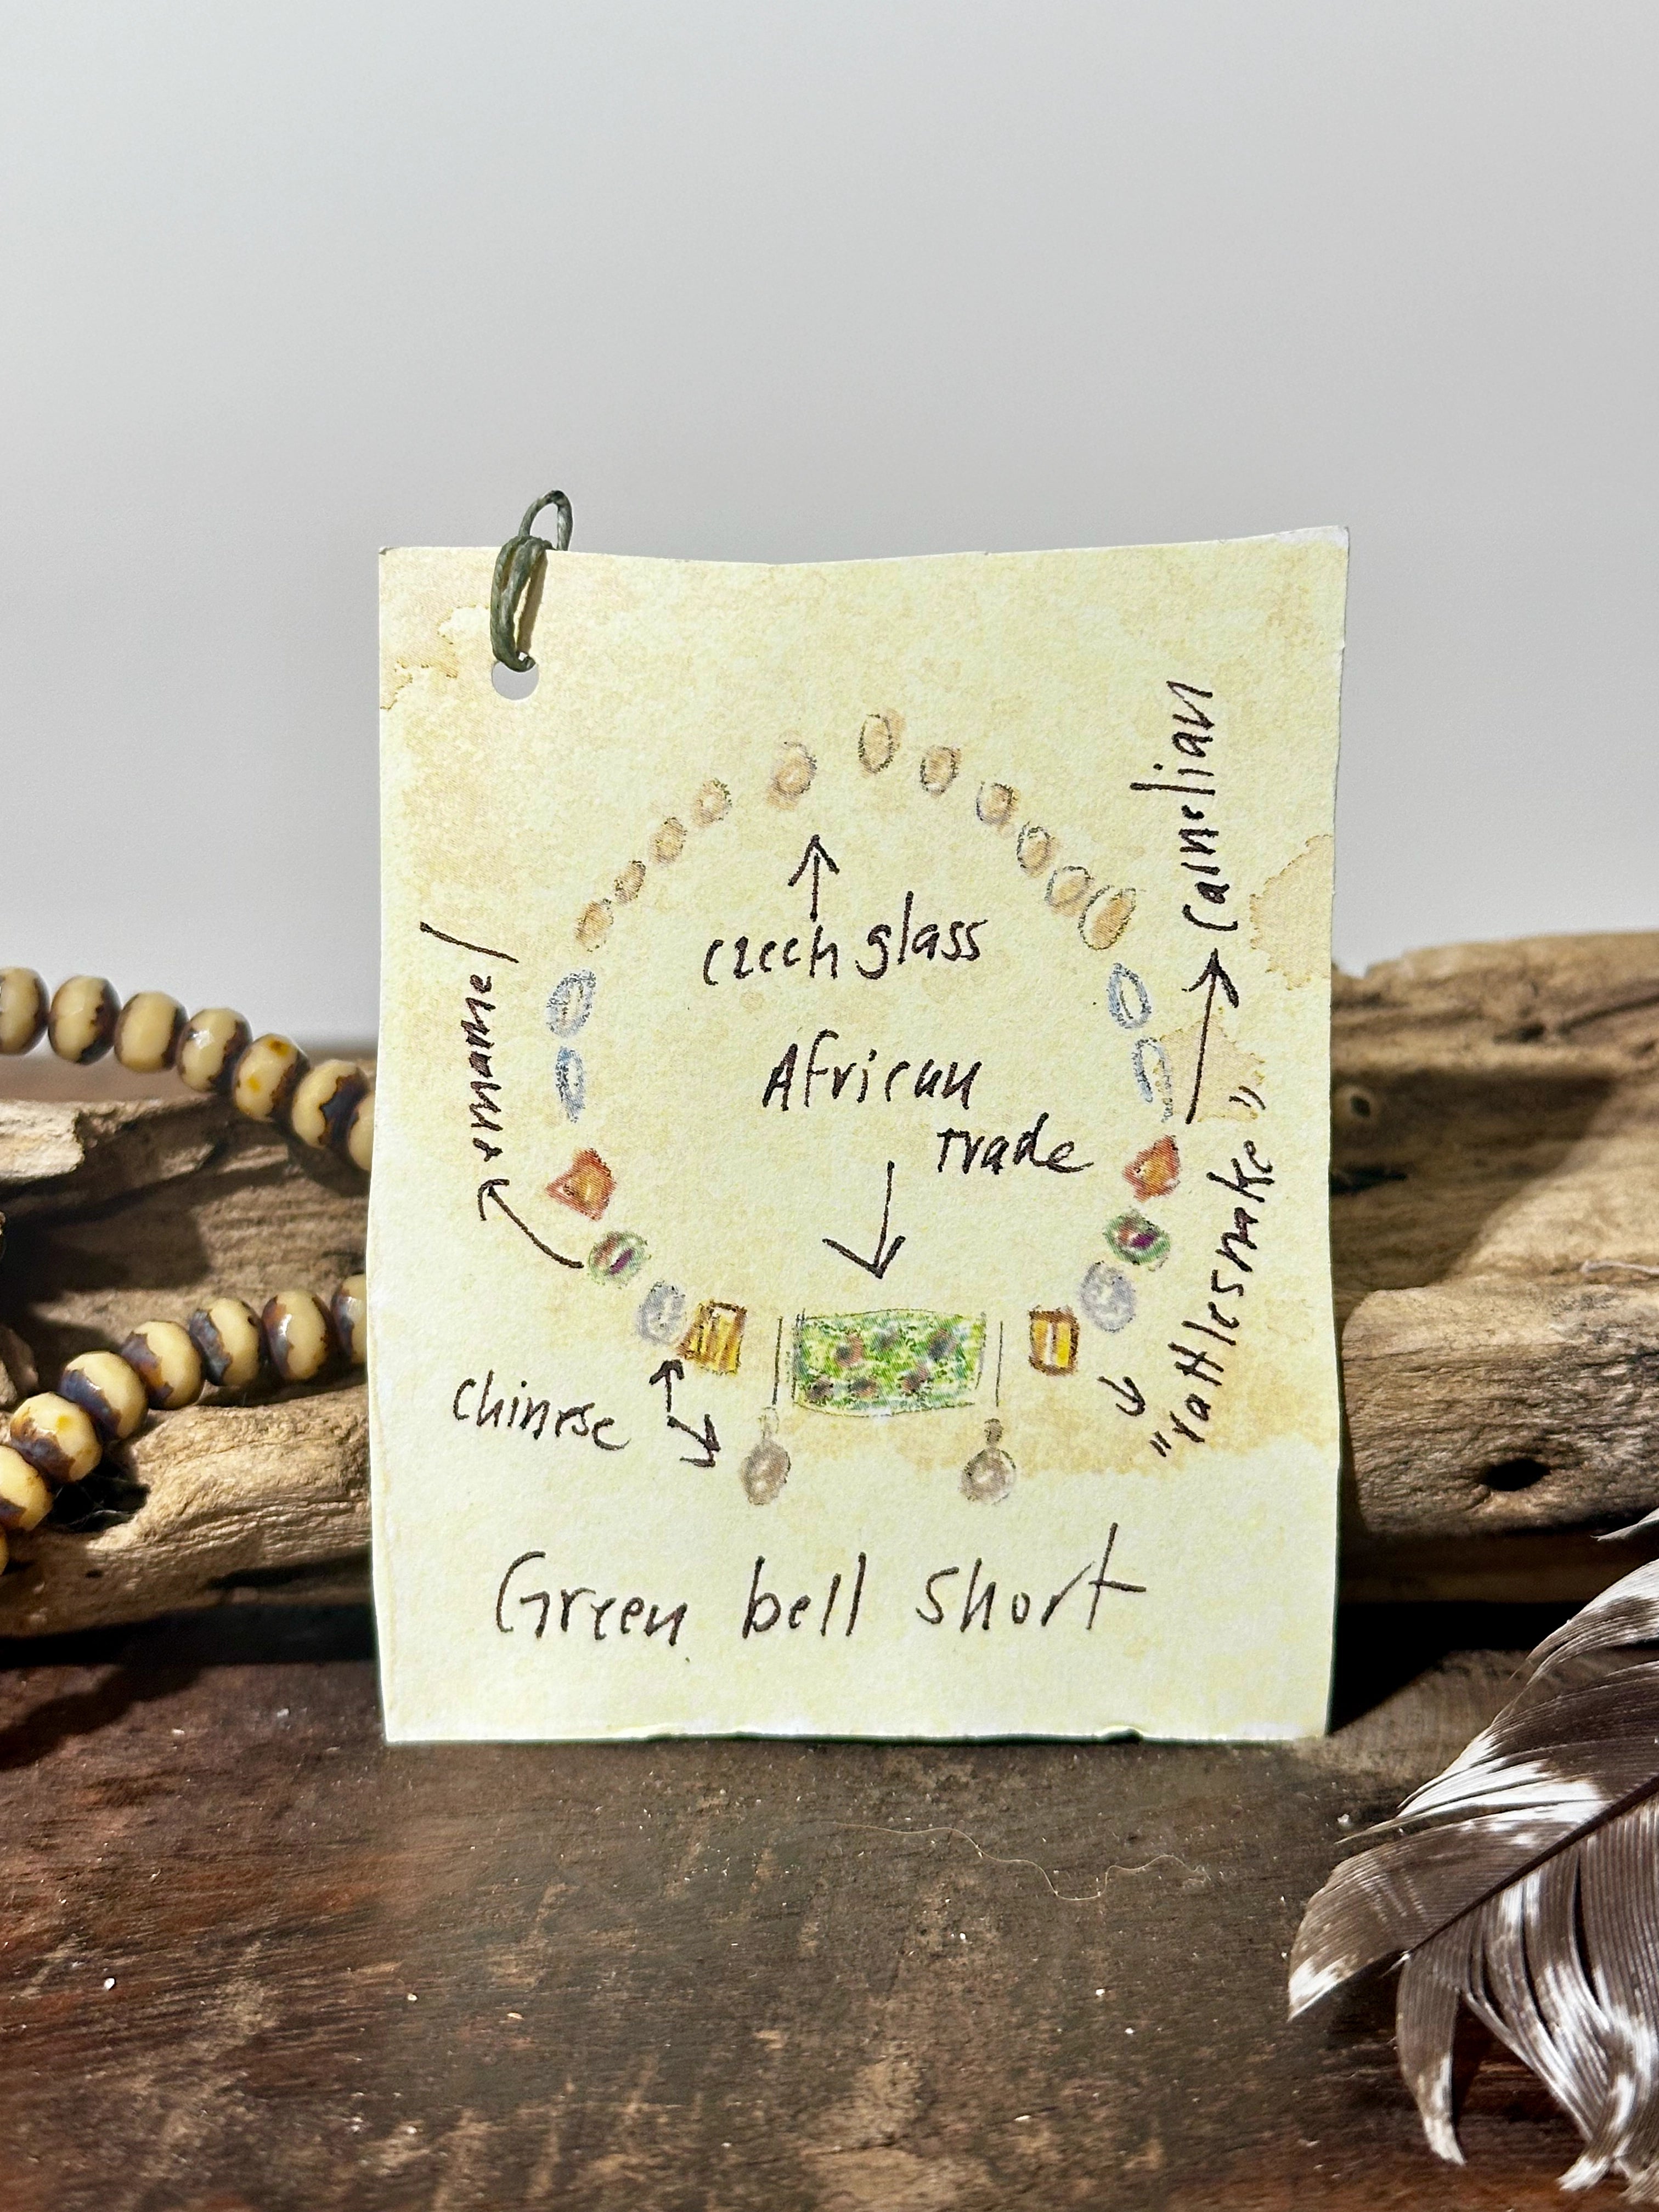 Carnelian
czech glass
emamel
African
trade
"rattlesnake"
Chinese
Green bell short